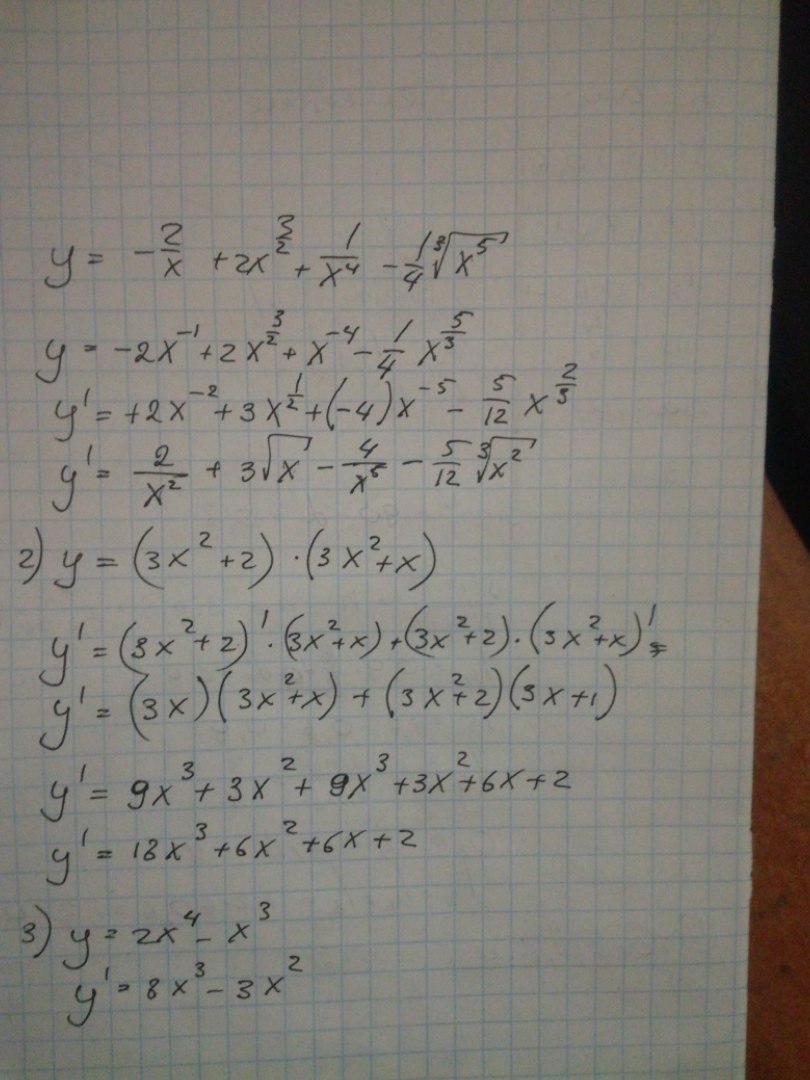 y = -2/x + 2x^(3/2) + 1/x^4 - 1/4 ∛(x^5)
y = -2x^(-1) + 2x^(3/2) + x^(-4) - 1/4 x^(5/3)
y' = +2x^(-2) + 3x^(1/2) + (-4)x^(-5) - 5/12 x^(2/3)
y' = 2/x^2 + 3√x - 4/x^5 - 5/12 ∛(x^2)
2) y = (3x^2 + 2) · (3x^2 + x)
y' = (3x^2 + 2)' · (3x^2 + x) + (3x^2 + 2) · (3x^2 + x)' =
y' = (3x)(3x^2 + x) + (3x^2 + 2)(3x + 1)
y' = 9x^3 + 3x^2 + 9x^3 + 3x^2 + 6x + 2
y' = 18x^3 + 6x^2 + 6x + 2
3) y = 2x^4 - x^3
y' = 8x^3 - 3x^2